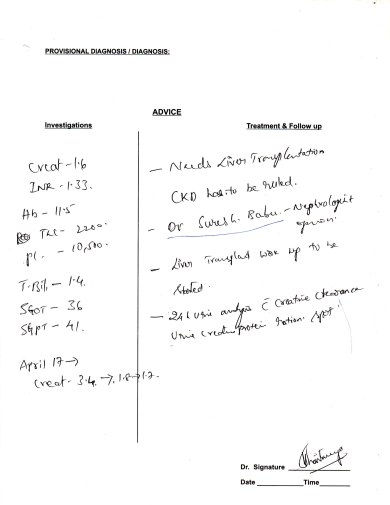 PROVISIONAL DIAGNOSIS / DIAGNOSIS:
ADVICE
Investigations
Creat - 1.6
INR - 1.33.
Hb - 11.5
TLC - 2200.
Pl. - 10,500.
T. Bil - 1.4.
SGOT - 36
SGPT - 41.
April 17 →
Creat - 3.4 → 1.8 → 1.7.
Treatment & Follow up
— Needs Liver Transplantation
CKD has to be ruled.
— Dr Suresh Babu - Nephrologist
opinion.
— Liver Transplant work up to be
started.
— 24 h Urine analysis c Creatine Clearance
Urine protein spot
Dr. Signature
Date Time